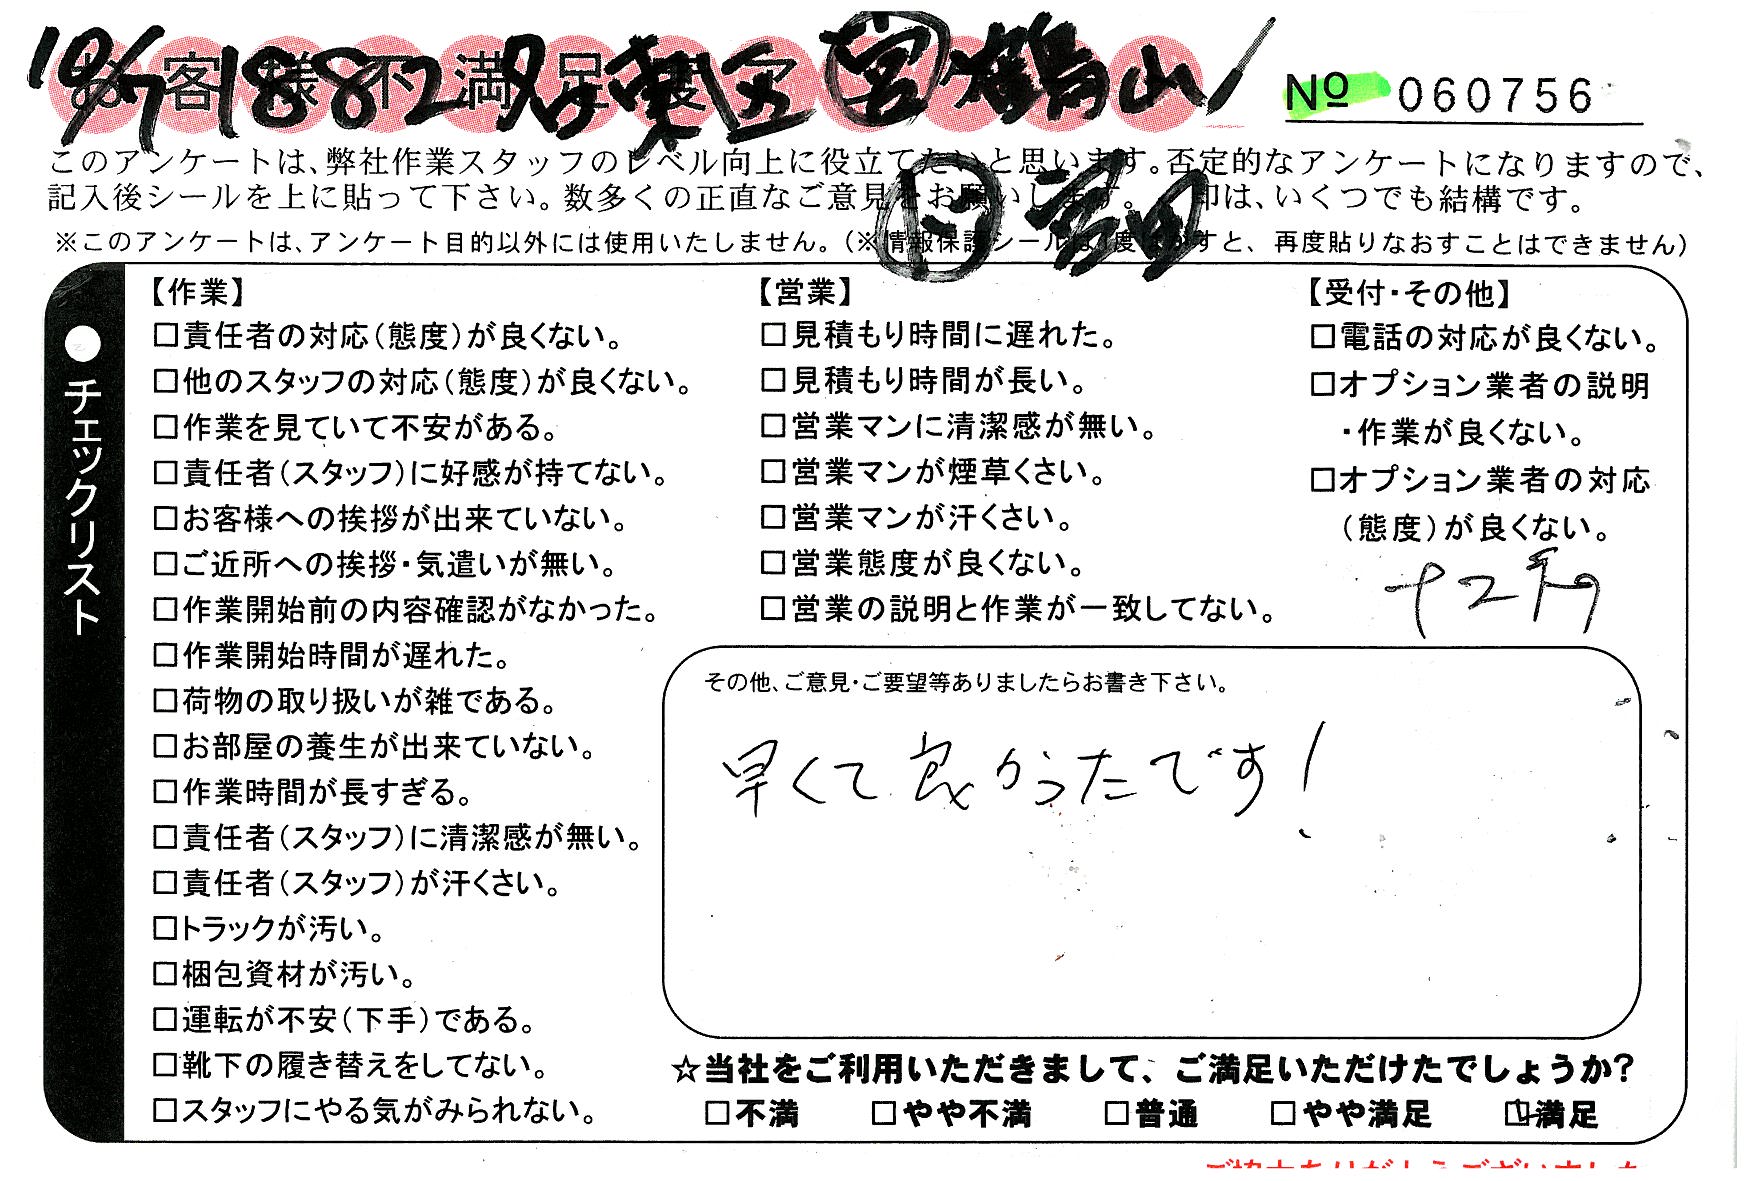 10/7 1882 東区 宮 山
お客様不満足度
No 060756
このアンケートは、弊社作業スタッフのレベル向上に役立てたいと思います。否定的なアンケートになりますので、
記入後シールを上に貼って下さい。数多くの正直なご意見をお願いします。印は、いくつでも結構です。
※このアンケートは、アンケート目的以外には使用いたしません。（※情報保護シールは1度はがすと、再度貼りなおすことはできません）
●チェックリスト
【作業】
□責任者の対応（態度）が良くない。
□他のスタッフの対応（態度）が良くない。
□作業を見ていて不安がある。
□責任者（スタッフ）に好感が持てない。
□お客様への挨拶が出来ていない。
□ご近所への挨拶・気遣いが無い。
□作業開始前の内容確認がなかった。
□作業開始時間が遅れた。
□荷物の取り扱いが雑である。
□お部屋の養生が出来ていない。
□作業時間が長すぎる。
□責任者（スタッフ）に清潔感が無い。
□責任者（スタッフ）が汗くさい。
□トラックが汚い。
□梱包資材が汚い。
□運転が不安（下手）である。
□靴下の履き替えをしてない。
□スタッフにやる気がみられない。
【営業】
□見積もり時間に遅れた。
□見積もり時間が長い。
□営業マンに清潔感が無い。
□営業マンが煙草くさい。
□営業マンが汗くさい。
□営業態度が良くない。
□営業の説明と作業が一致してない。
【受付・その他】
□電話の対応が良くない。
□オプション業者の説明
・作業が良くない。
□オプション業者の対応
（態度）が良くない。
その他、ご意見・ご要望等ありましたらお書き下さい。
早くて良かったです！
☆当社をご利用いただきまして、ご満足いただけたでしょうか？
□不満 □やや不満 □普通 □やや満足 ☑満足
ご協力ありがとうございました